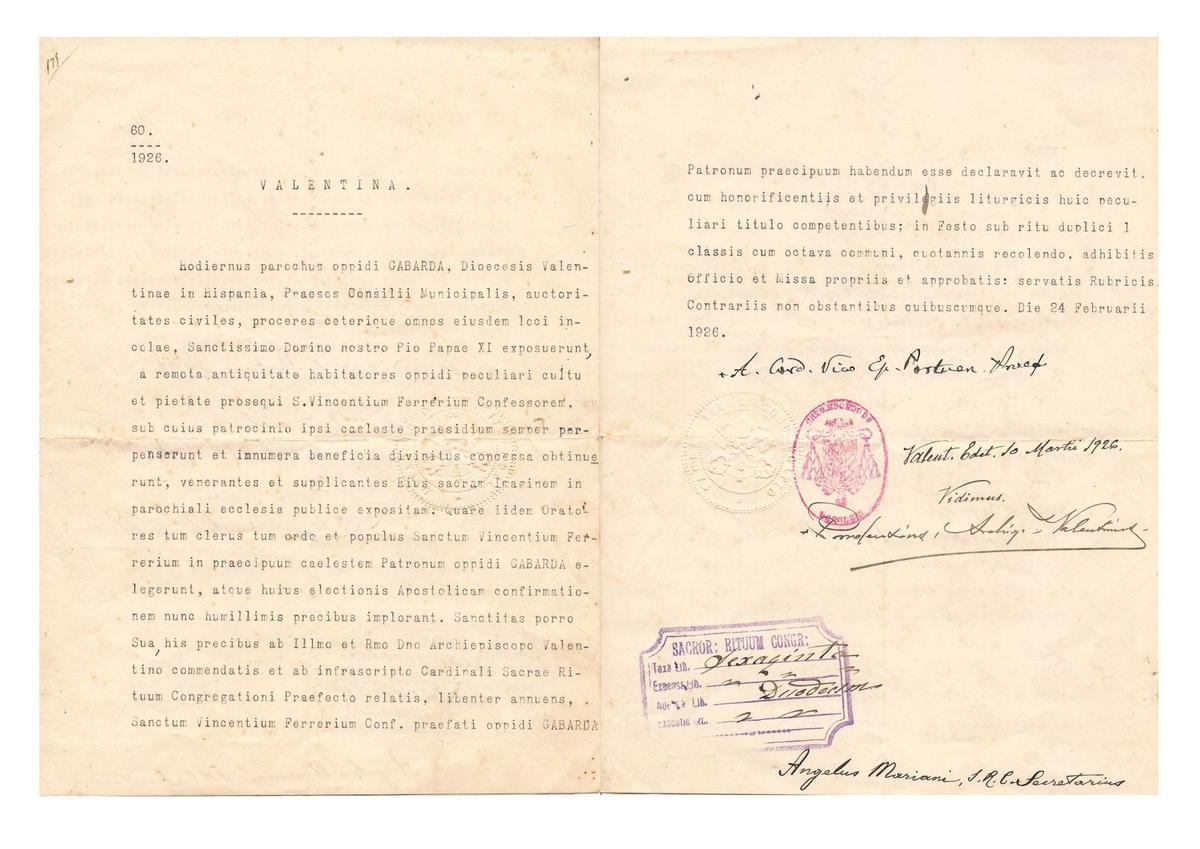 175
60.
1926.
VALENTINA.
Hodiernus parochus oppidi GABARDA, Dioecesis Valen-
tinae in Hispania, Praeses Consilii Municipalis, auctori-
tates civiles, proceres ceterique omnes eiusdem loci in-
colae, Sanctissimo Domino nostro Pio Papae XI exposuerunt,
a remota antiquitate habitatores oppidi peculiari cultu
et pietate prosequi S.Vincentium Ferrerium Confessorem,
sub cuius patrocinio ipsi caeleste praesidium semper per-
penserunt et innumera beneficia divinitus concessa obtinue
runt, venerantes et supplicantes Eius sacram Imaginem in
parochiali ecclesia publice expositam. Quare iidem Orato-
res tum clerus tum ordo et populus Sanctum Vincentium Fer-
rerium in praecipuum caelestem Patronum oppidi GABARDA e-
legerunt, atque huius electionis Apostolicam confirmatio-
nem nunc humillimis precibus implorant. Sanctitas porro
Sua, his precibus ab Illmo et Rmo Dno Archiepiscopo Valen-
tino commendatis et ab infrascripto Cardinali Sacrae Ri-
tuum Congregationi Praefecto relatis, libenter annuens,
Sanctum Vincentium Ferrerium Conf. praefati oppidi GABARDA
Patronum praecipuum habendum esse declaravit ac decrevit,
cum honorificentiis et privilegiis liturgicis huic pecu-
liari titulo competentibus; in Festo sub ritu duplici 1
classis cum octava communi, quotannis recolendo, adhibitis
Officio et Missa propriis et approbatis: servatis Rubricis
Contrariis non obstantibus quibuscumque. Die 24 Februarii
1926.
A. Card. Vico Ep. Portuen. Praef
Valent. Edet. 10 Martii 1926.
Vidimus.
Valentinus
SACROR: RITUUM CONGR:
Taxa Lib. Sexaginta
Expensæ Lib.
Agentiæ Lib. Duodecim
Executio Lit.
Angelus Mariani, S.R.C. Secretarius